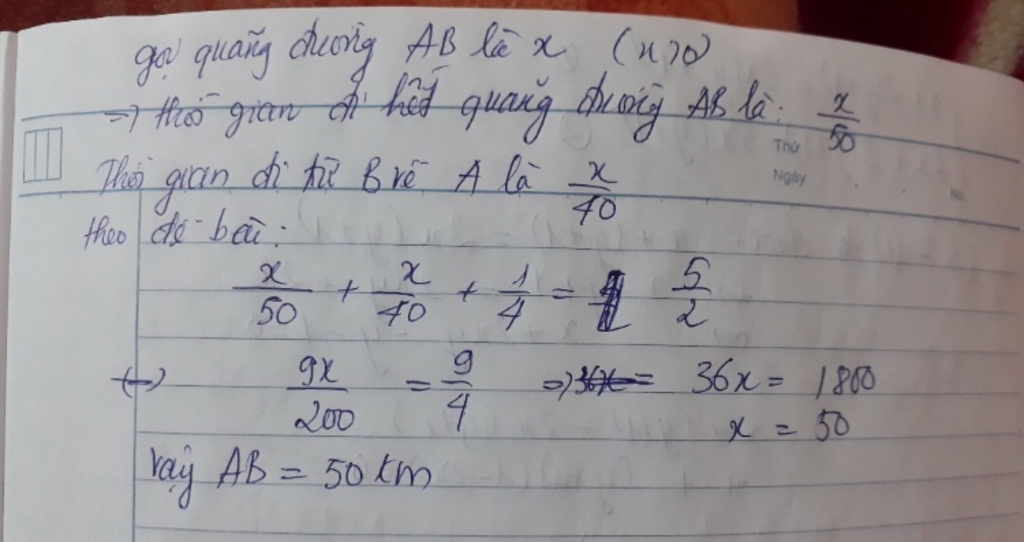 gọi quãng đường AB là x (x>0)
=> thời gian đi hết quãng đường AB là: x/50
Thứ
Ngày
No.
Thời gian đi từ B về A là x/40
theo đề bài:
x/50 + x/40 + 1/4 = 5/2
<=> 9x/200 = 9/4 => 36x = 1800
x = 50
vậy AB = 50 km